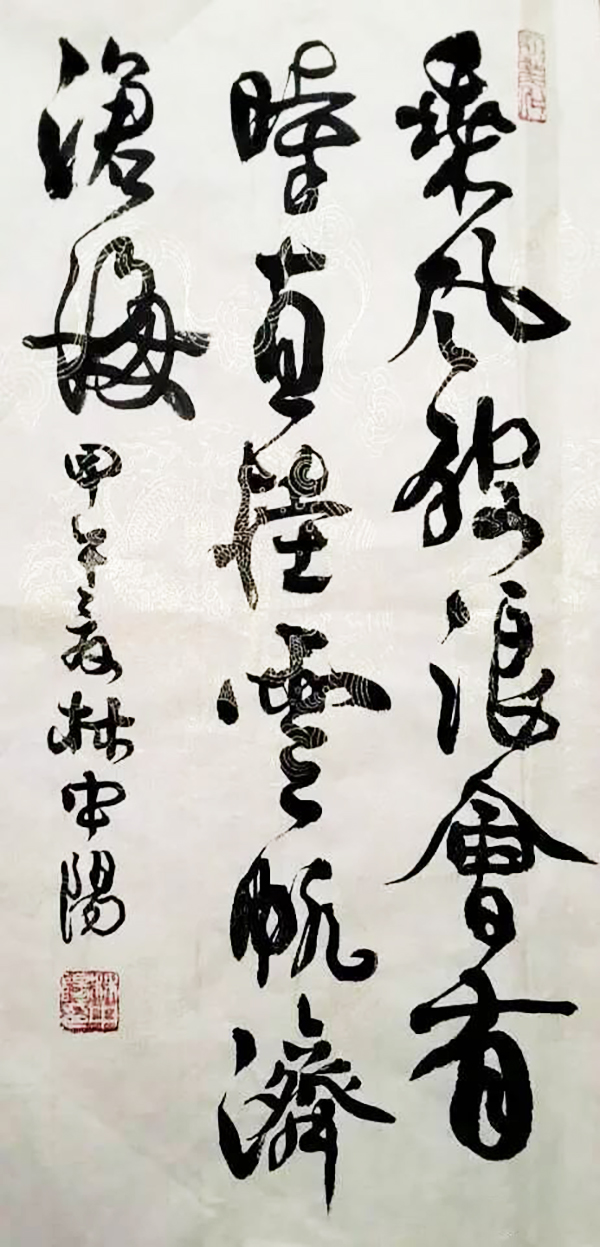 乘风破浪會有
時直挂雲帆濟
滄海
甲午夏林中陽